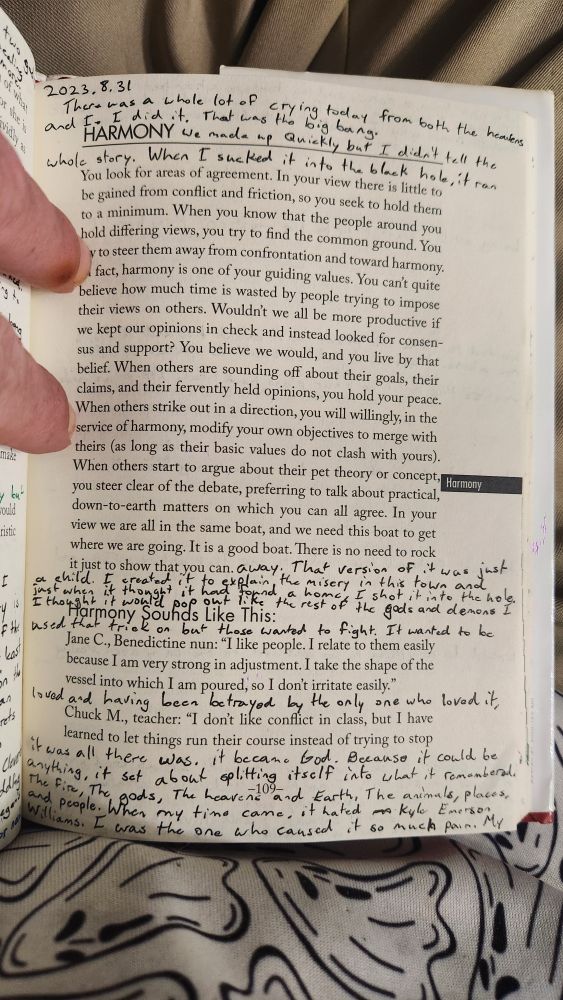 2023.8.31
There was a whole lot of crying today from both the heavens
and I. I did it. That was the big bang.
HARMONY we made up quickly but I didn't tell the
whole story. When I sucked it into the black hole, it ran
You look for areas of agreement. In your view there is little to
be gained from conflict and friction, so you seek to hold them
to a minimum. When you know that the people around you
hold differing views, you try to find the common ground. You
y to steer them away from confrontation and toward harmony.
fact, harmony is one of your guiding values. You can't quite
believe how much time is wasted by people trying to impose
their views on others. Wouldn't we all be more productive if
we kept our opinions in check and instead looked for consen-
sus and support? You believe we would, and you live by that
belief. When others are sounding off about their goals, their
claims, and their fervently held opinions, you hold your peace.
When others strike out in a direction, you will willingly, in the
service of harmony, modify your own objectives to merge with
theirs (as long as their basic values do not clash with yours).
When others start to argue about their pet theory or concept,
Harmony
you steer clear of the debate, preferring to talk about practical,
down-to-earth matters on which you can all agree. In your
view we are all in the same boat, and we need this boat to get
where we are going. It is a good boat. There is no need to rock
it just to show that you can. away. That version of it was just
a child. I created it to explain the misery in this town and
just when it thought it had found a home, I shot it into the hole.
I thought it would pop out like the rest of the gods and demons I
Harmony Sounds Like This:
used that trick on but those wanted to fight. It wanted to be
Jane C., Benedictine nun: "I like people. I relate to them easily
because I am very strong in adjustment. I take the shape of the
vessel into which I am poured, so I don't irritate easily."
loved and having been betrayed by the only one who loved it,
Chuck M., teacher: "I don't like conflict in class, but I have
learned to let things run their course instead of trying to stop
it was all there was. it became God. Because it could be
anything, it set about splitting itself into what it remembered.
–109–
The fire, The gods, The heavens and Earth, The animals, places,
and people. When my time came, it hated Kyle Emerson
Williams. I was the one who caused it so much pain. My